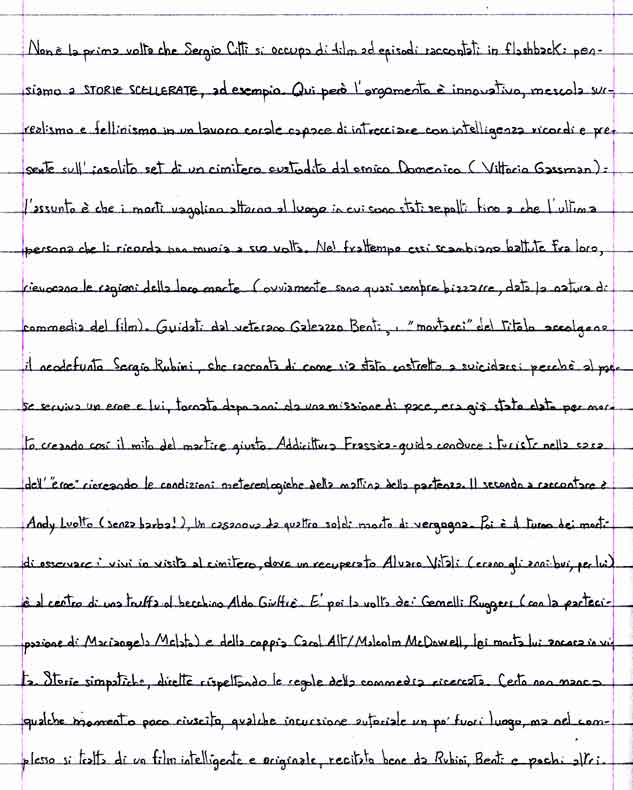 Non è la prima volta che Sergio Citti si occupa di film ad episodi raccontati in flashback: pen-
siamo a STORIE SCELLERATE, ad esempio. Qui però l'argomento è innovativo, mescola sur-
realismo e fellinismo in un lavoro corale capace di intrecciare con intelligenza ricordi e pre-
sente sull'insolito set di un cimitero custodito dal comico Domenico (Vittorio Gassman):
l'assunto è che i morti vagolino attorno al luogo in cui sono stati sepolti fino a che l'ultima
persona che li ricorda non muoia a sua volta. Nel frattempo essi scambiano battute fra loro,
rievocano le ragioni della loro morte (ovviamente sono quasi sempre bizzarre, data la natura di
commedia del film). Guidati dal veterano Galeazzo Benti, i "mortacci" del titolo accolgono
il neodefunto Sergio Rubini, che racconta di come sia stato costretto a suicidarsi perchè al pae-
se serviva un eroe e lui, tornato dopo anni da una missione di pace, era già stato dato per mor-
to creando così il mito del martire giusto. Addirittura Frassica-guida conduce i turisti nella casa
dell'"eroe" ricreando le condizioni metereologiche della mattina della partenza. Il secondo a raccontare è
Andy Luotto (senza barba!), un casanova da quattro soldi morto di vergogna. Poi è il turno dei morti
di osservare i vivi in visita al cimitero, dove un recuperato Alvaro Vitali (erano gli anni bui, per lui)
è al centro di una truffa al becchino Aldo Giuffrè. E' poi la volta dei Gemelli Ruggeri (con la parteci-
pazione di Mariangela Melato) e della coppia Carol Alt/Malcolm McDowell, lei morta lui ancora in vi-
ta. Storie simpatiche, dirette rispettando le regole della commedia ricercata. Certo non manca
qualche momento poco riuscito, qualche incursione autoriale un po' fuori luogo, ma nel com-
plesso si tratta di un film intelligente e originale, recitato bene da Rubini, Benti e pochi altri.